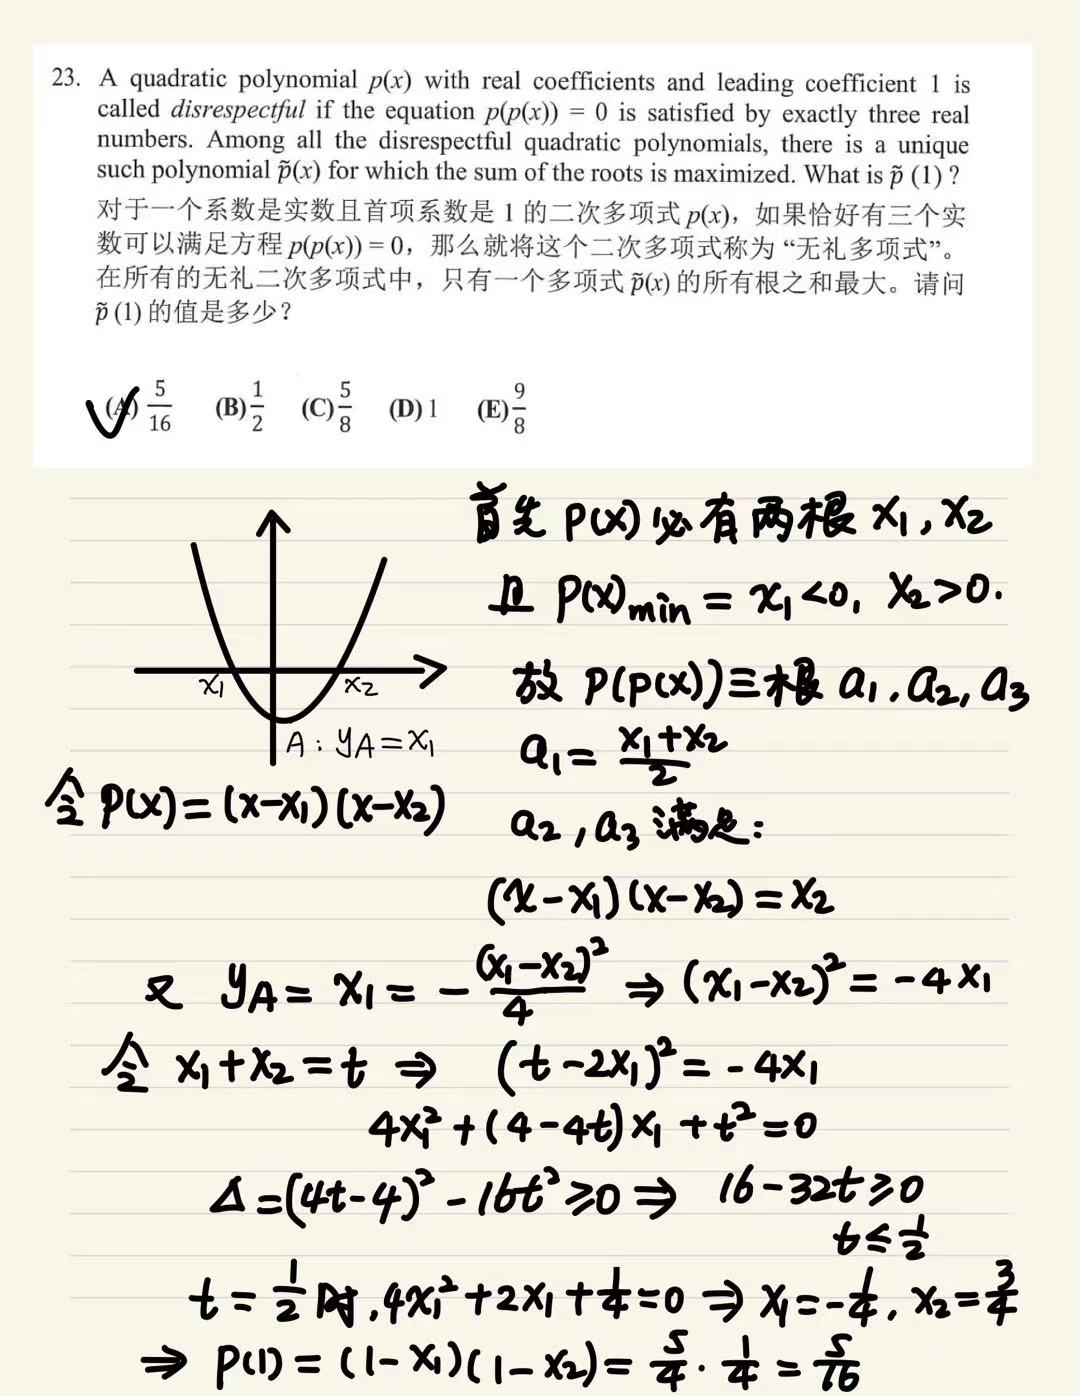 23. A quadratic polynomial p(x) with real coefficients and leading coefficient 1 is
called disrespectful if the equation p(p(x)) = 0 is satisfied by exactly three real
numbers. Among all the disrespectful quadratic polynomials, there is a unique
such polynomial p̃(x) for which the sum of the roots is maximized. What is p̃ (1) ?
对于一个系数是实数且首项系数是 1 的二次多项式 p(x)，如果恰好有三个实
数可以满足方程 p(p(x)) = 0，那么就将这个二次多项式称为 “无礼多项式”。
在所有的无礼二次多项式中，只有一个多项式 p̃(x) 的所有根之和最大。请问
p̃ (1) 的值是多少？
(A) 5/16 (B) 1/2 (C) 5/8 (D) 1 (E) 9/8
首先 P(x) 必有两根 x₁, x₂
且 P(x)min = x₁<0, x₂>0.
故 P(P(x))三根 a₁, a₂, a₃
a₁ = (x₁+x₂)/2
a₂, a₃ 满足:
(x-x₁)(x-x₂) = x₂
x₁ x₂
A: yA = x₁
令 P(x) = (x-x₁)(x-x₂)
又 yA = x₁ = -(x₁-x₂)²/4 ⇒ (x₁-x₂)² = -4x₁
令 x₁+x₂ = t ⇒ (t-2x₁)² = -4x₁
4x₁² + (4-4t)x₁ + t² = 0
Δ = (4t-4)² - 16t² ≥ 0 ⇒ 16-32t ≥ 0
t ≤ 1/2
t = 1/2 时, 4x₁² + 2x₁ + 1/4 = 0 ⇒ x₁ = -1/4, x₂ = 3/4
⇒ P(1) = (1-x₁)(1-x₂) = 5/4 · 1/4 = 5/16